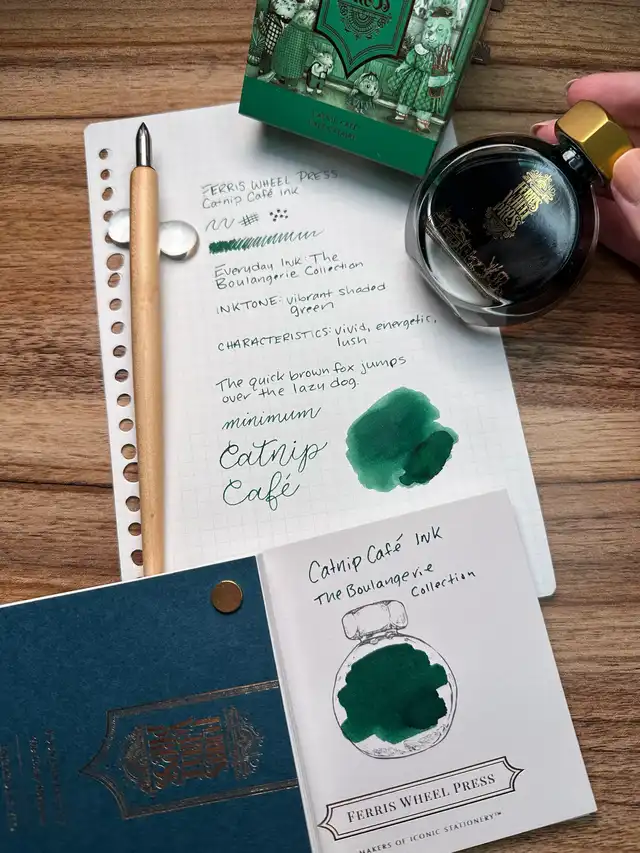 FERRIS WHEEL PRESS
Catnip Café Ink
Everyday Ink: The
Boulangerie Collection
INKTONE: vibrant shaded
green
CHARACTERISTICS: vivid, energetic,
lush
The quick brown fox jumps
over the lazy dog.
minimum
Catnip
Café
Catnip Café Ink
The Boulangerie
Collection
FERRIS WHEEL PRESS
MAKERS OF ICONIC STATIONERY™
FERRIS
WHEEL
PRESS
FERRIS
WHEEL
PRESS